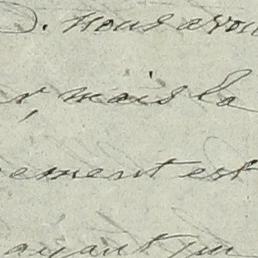 . nous avon
r, mais la
ement est
ayant pu